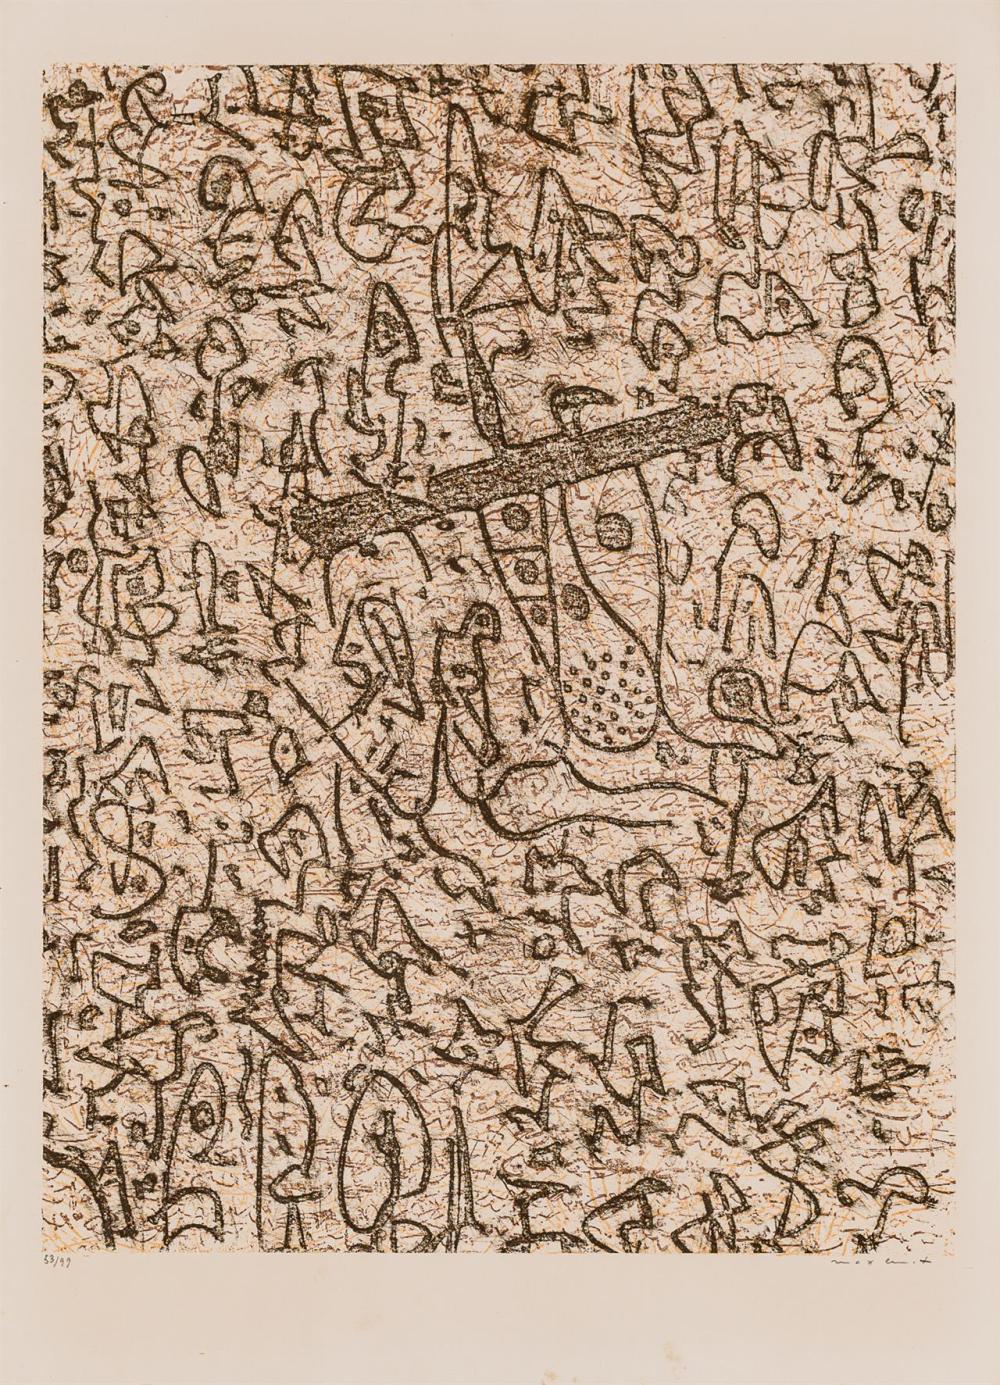 53/99
max ernst